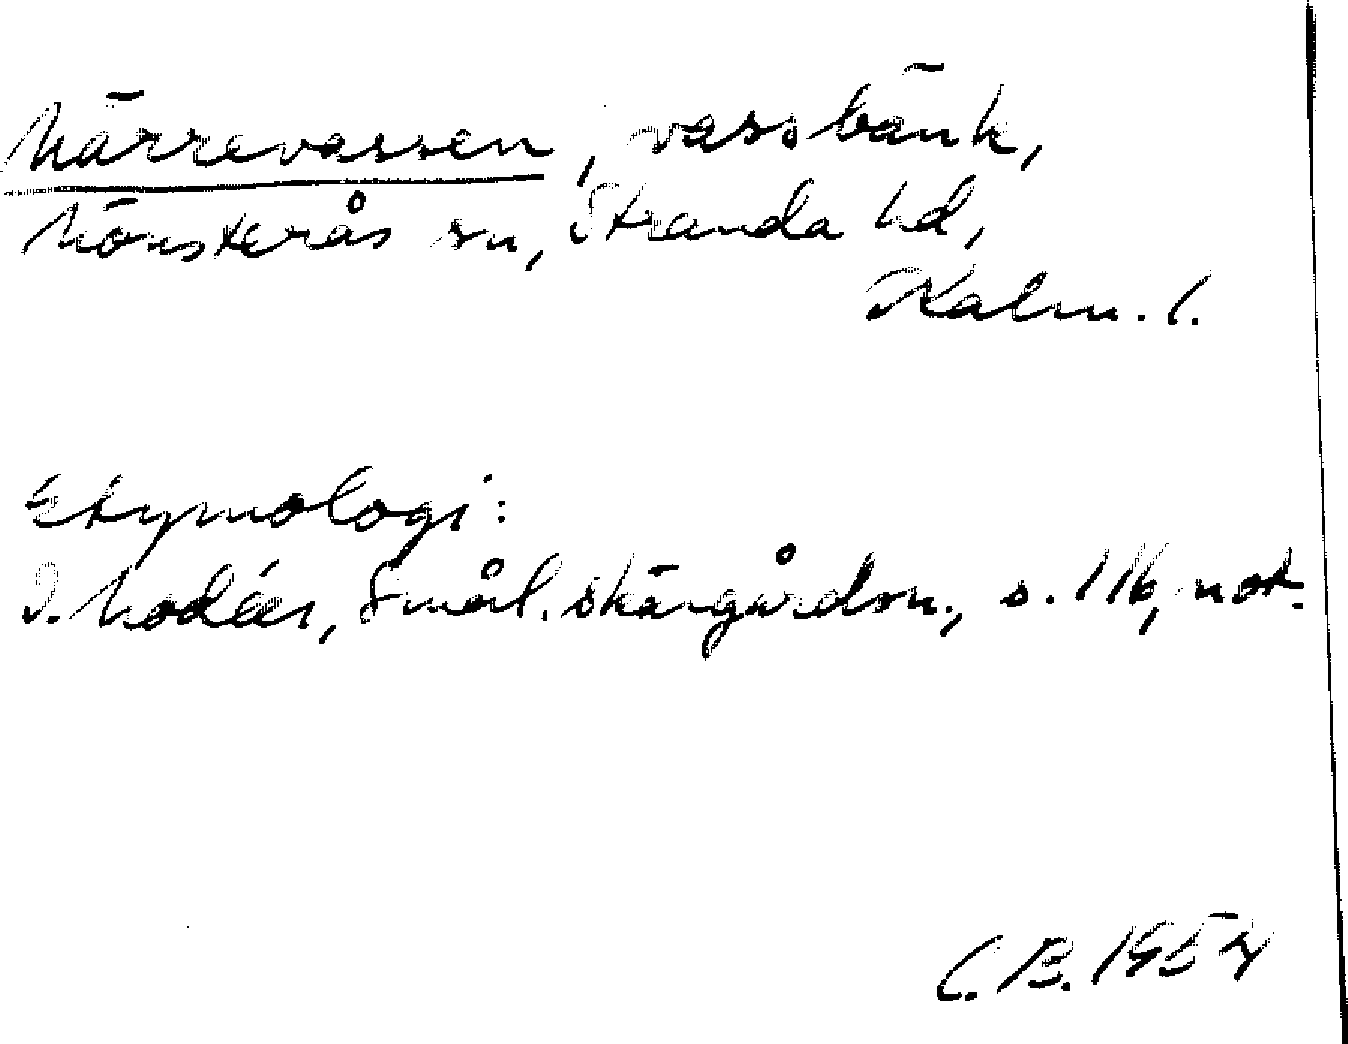 Märrevassen, vassbänk,
Mönsterås sn, Stranda hd,
Kalm. l.
Etymologi:
I. Modéer, Smål. skärgårdsn., s. 116, not.
C. B. 1957